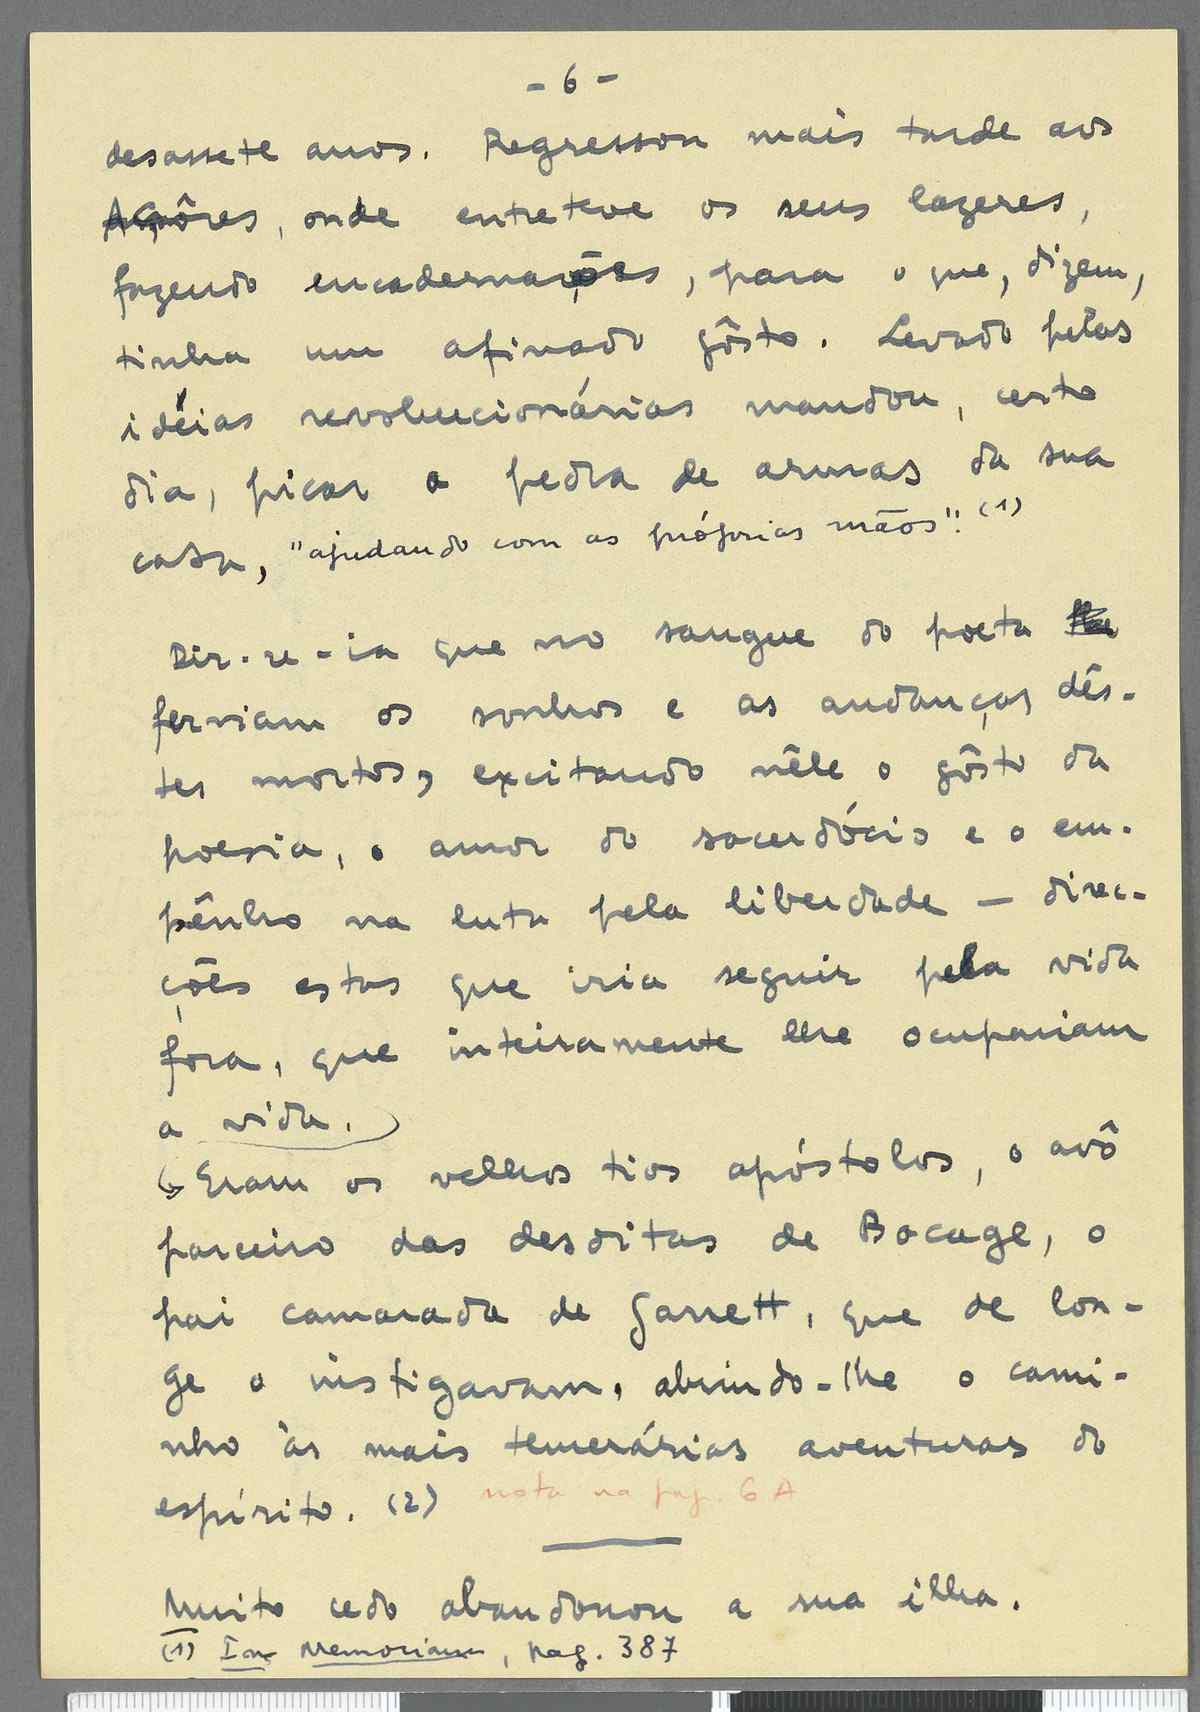 - 6 -
desassete anos. Regressou mais tarde aos
Açôres, onde entreteve os seus lazeres,
fazendo encadernações, para o que, dizem,
tinha um afinado gôsto. Levado pelas
idéias revolucionárias mandou, certo
dia, picar a pedra de armas da sua
casa, "ajudando com as próprias mãos". (1)
Dir-se-ia que no sangue do poeta
ferviam os sonhos e as andanças dês-
tes mortos, excitando nêle o gôsto da
poesia, o amor do sacerdócio e o em-
pênho na luta pela liberdade — direc-
ções estas que iria seguir pela vida
fora, que inteiramente lhe ocupariam
a vida.
Eram os velhos tios apóstolos, o avô
parceiro das desditas de Bocage, o
pai camarada de Garrett, que de lon-
ge o instigavam, abrindo-lhe o cami-
nho às mais temerárias aventuras do
espírito. (2) nota na pag. 6 A
Muito cedo abandonou a sua ilha.
(1) In Memoriam, pag. 387